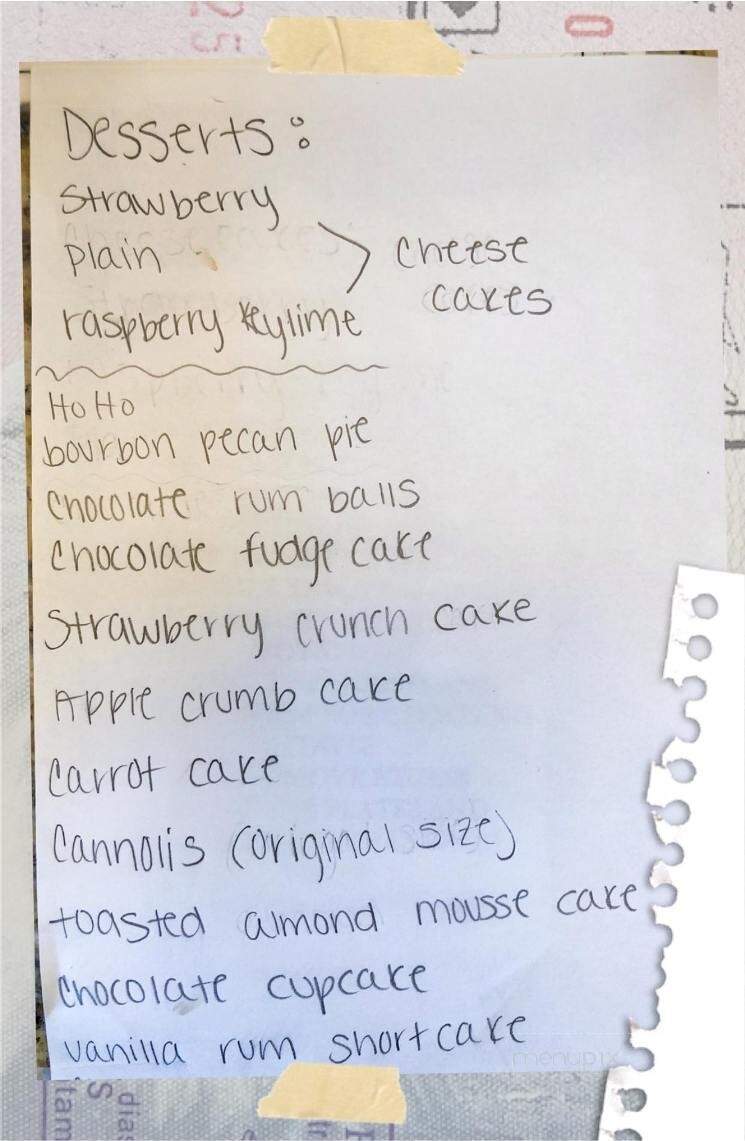 Desserts:
Strawberry
plain
raspberry keylime
cheese
cakes
HoHo
bourbon pecan pie
Chocolate rum balls
Chocolate fudge cake
Strawberry crunch cake
Apple crumb cake
Carrot cake
Cannolis (original size)
toasted almond mousse cake
Chocolate cupcake
vanilla rum shortcake
menupix